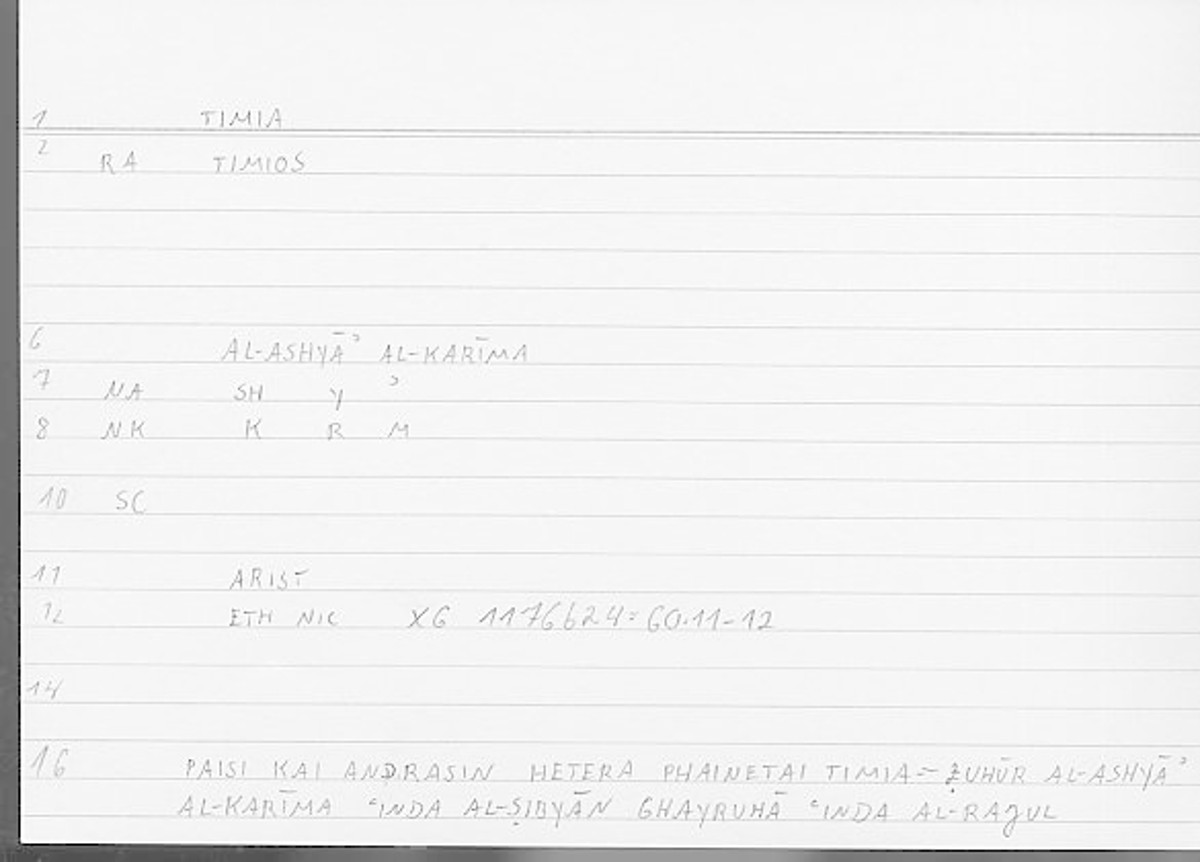 1 TIMIA
2 RA TIMIOS
6 AL-ASHYĀʾ AL-KARĪMA
7 NA SH Y ʾ
8 NK K R M
10 SC
11 ARIST
12 ETH NIC X6 1176b24=60.11-12
14
16 PAISI KAI ANDRASIN HETERA PHAINETAI TIMIA = ẒUHŪR AL-ASHYĀʾ
AL-KARĪMA ʿINDA AL-ṢIBYĀN GHAYRUHĀ ʿINDA AL-RAJUL